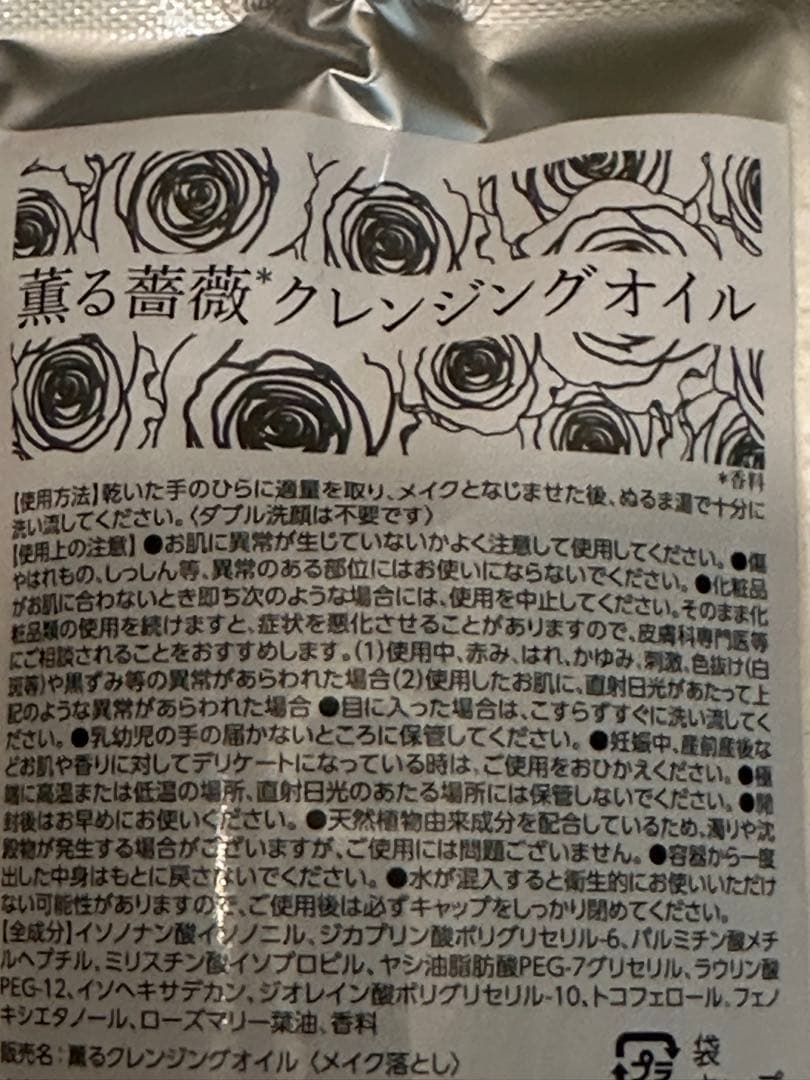 薫る薔薇*クレンジングオイル
*香料
【使用方法】乾いた手のひらに適量を取り、メイクとなじませた後、ぬるま湯で十分に
洗い流してください。〈ダブル洗顔は不要です〉
【使用上の注意】●お肌に異常が生じていないかよく注意して使用してください。●傷
やはれもの、しっしん等、異常のある部位にはお使いにならないでください。●化粧品
がお肌に合わないとき即ち次のような場合には、使用を中止してください。そのまま化
粧品類の使用を続けますと、症状を悪化させることがありますので、皮膚科専門医等
にご相談されることをおすすめします。(1)使用中、赤み、はれ、かゆみ、刺激、色抜け(白
斑等)や黒ずみ等の異常があらわれた場合(2)使用したお肌に、直射日光があたって上
記のような異常があらわれた場合 ●目に入った場合は、こすらずすぐに洗い流してく
ださい。●乳幼児の手の届かないところに保管してください。●妊娠中、産前産後な
どお肌や香りに対してデリケートになっている時は、ご使用をおひかえください。●極
端に高温または低温の場所、直射日光のあたる場所には保管しないでください。●開
封後はお早めにお使いください。●天然植物由来成分を配合しているため、濁りや沈
殿物が発生する場合がございますが、ご使用には問題ございません。●容器から一度
出した中身はもとに戻さないでください。●水が混入すると衛生的にお使いいただけ
ない可能性がありますので、ご使用後は必ずキャップをしっかり閉めてください。
【全成分】イソノナン酸イソノニル、ジカプリン酸ポリグリセリル-6、パルミチン酸メチ
ルヘプチル、ミリスチン酸イソプロピル、ヤシ油脂肪酸PEG-7グリセリル、ラウリン酸
PEG-12、イソヘキサデカン、ジオレイン酸ポリグリセリル-10、トコフェロール、フェノ
キシエタノール、ローズマリー葉油、香料
販売名：薫るクレンジングオイル〈メイク落とし〉
プラ
袋